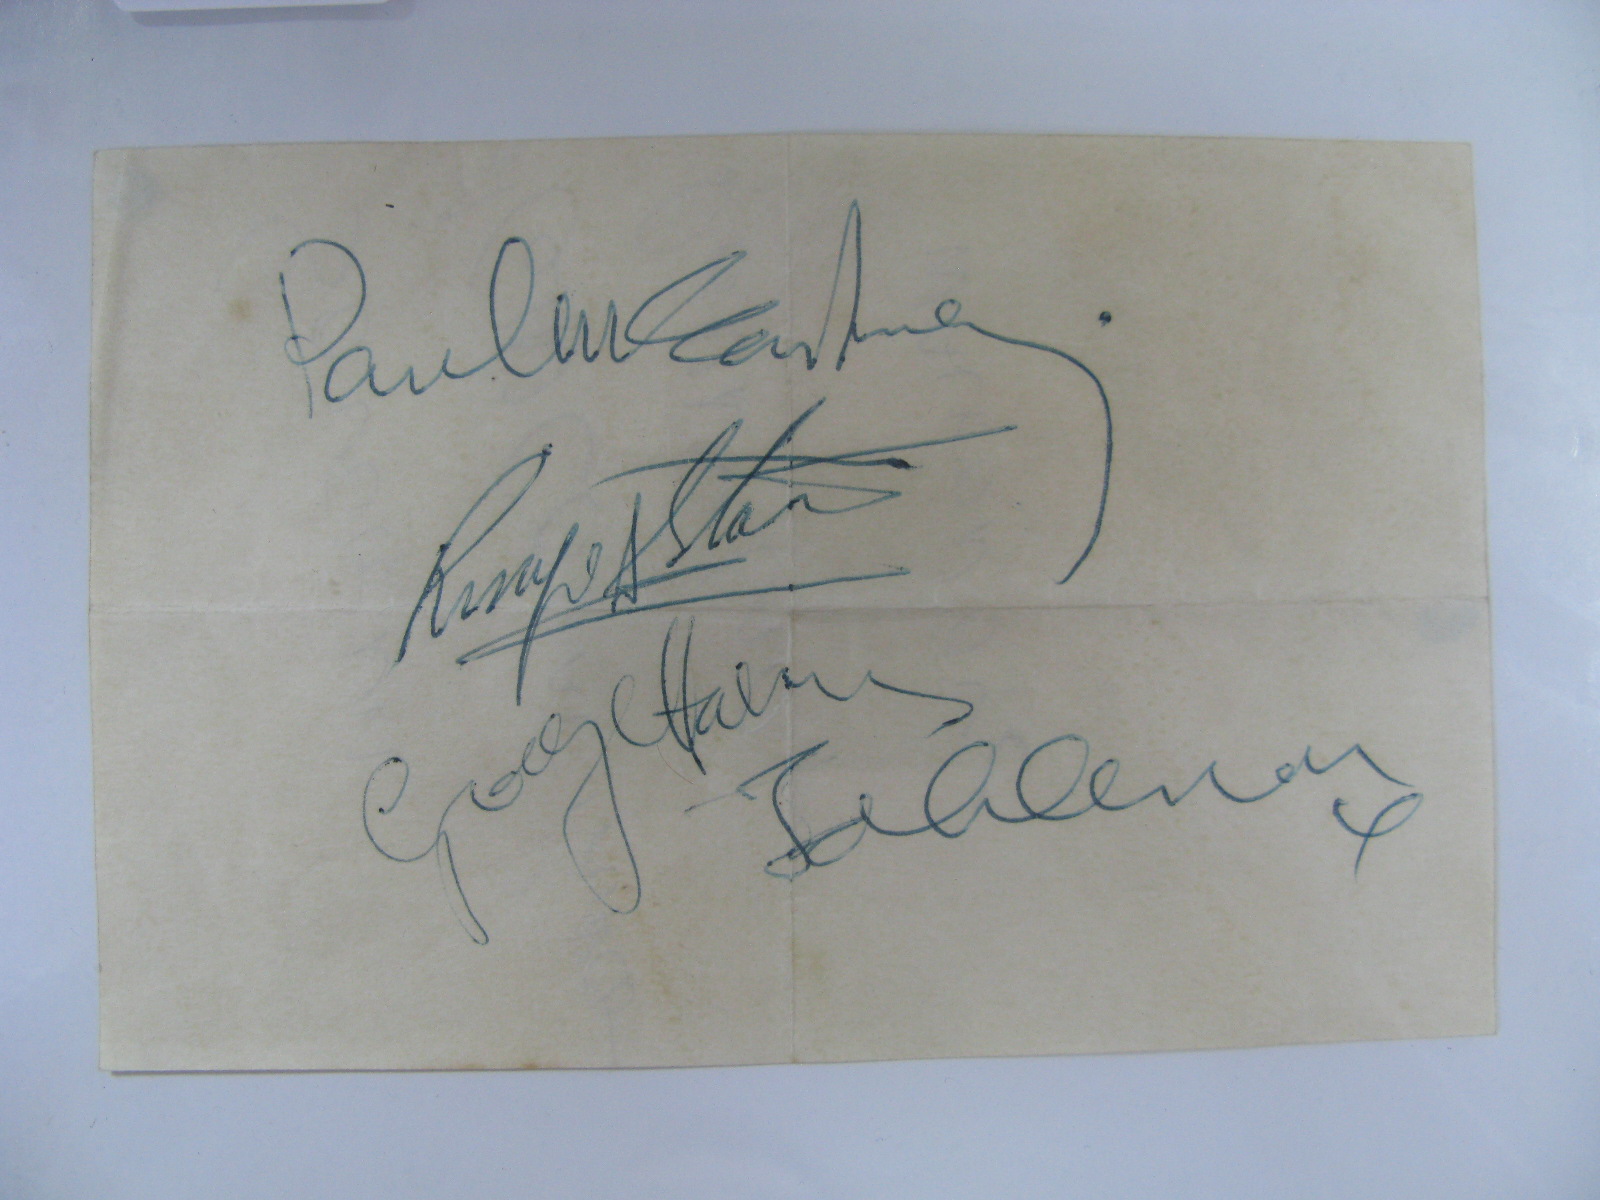 Paul McCartney.
Ringo Starr
George Harrison
John Lennon x